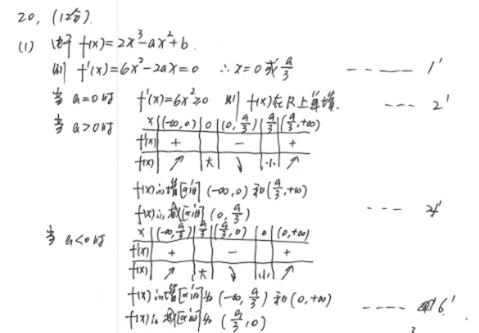 20. (12分)
(1) 由于 f(x)=2x³-ax²+b.
则 f'(x)=6x²-2ax=0 ∴x=0或a/3 ----- 1'
当 a=0时 f'(x)=6x²≥0 则 f(x)在R上单增. --- 2'
当 a>0时 x (-∞,0) 0 (0,a/3) a/3 (a/3,+∞)
f'(x) + - +
f(x) ↗ 大 ↘ 小 ↗
f(x)的增区间 (-∞,0) 和 (a/3,+∞)
f(x)的减区间 (0,a/3) --- 4'
当 a<0时 x (-∞,a/3) a/3 (a/3,0) 0 (0,+∞)
f'(x) + - +
f(x) ↗ 大 ↘ 小 ↗
f(x)的增区间为 (-∞,a/3) 和 (0,+∞)
f(x)的减区间为 (a/3,0) ---- 6'